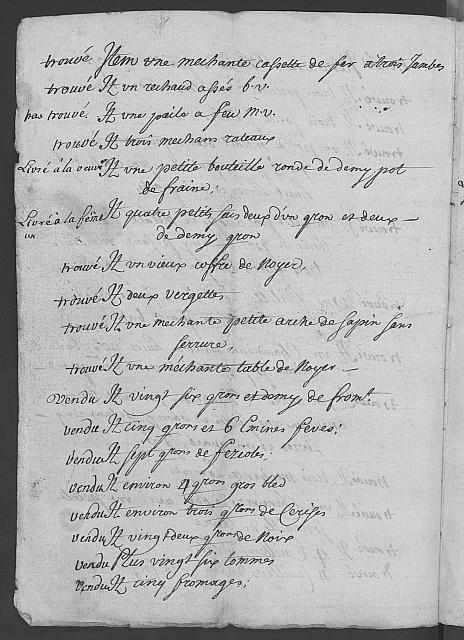 trouvé Item vne mechante cassette de fer a trois Jambes
trouvé It vn rechaud assés b.v.
pas trouvé. It vne paile a feu m.v.
trouvé It trois mechans rateaux
Livré à la veuve It vne petite bouteille ronde de demy pot
de fraine;
Livré à la It quatre petits sacs deux d'vn qron et deux
un de demy qron
trouvé It vn vieux coffre de Noyer,
trouvé It deux vergettes
trouvé It vne mechante petite arche de sapin sans
serrure,
trouvé It vne méchante table de Noyer
vendu It vingt six qrons et demy de from.t
vendu It cinq qrons et 6 Emines feves;
vendu It sept qrons de fezioles
vendu It environ 4 qrons gros bled
vendu It environ trois qrons de Cerises
vendu It vingt deux qrons de Noix
vendu Plus vingt six tommes
vendu It cinq fromages;